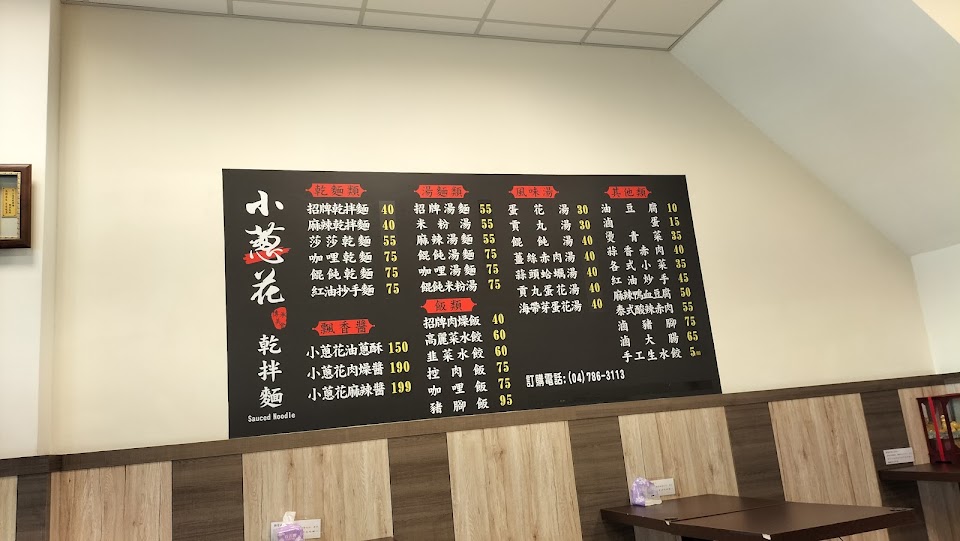 小蔥花
乾拌麵
Sauced Noodle
乾麵類
招牌乾拌麵 40
麻辣乾拌麵 40
莎莎乾麵 55
咖哩乾麵 75
餛飩乾麵 75
紅油抄手麵 75
飄香醬
小蔥花油蔥酥 150
小蔥花肉燥醬 190
小蔥花麻辣醬 199
湯麵類
招牌湯麵 55
米粉湯 55
麻辣湯麵 55
餛飩湯麵 75
咖哩湯麵 75
餛飩米粉湯 75
飯類
招牌肉燥飯 40
高麗菜水餃 60
韭菜水餃 60
控肉飯 75
咖哩飯 75
豬腳飯 95
風味湯
蛋花湯 30
貢丸湯 30
餛飩湯 40
薑絲赤肉湯 40
蒜頭蛤蠣湯 40
貢丸蛋花湯 40
海帶芽蛋花湯 40
其他類
油豆腐 10
滷蛋 15
燙青菜 35
蒜香赤肉 40
各式小菜 35
紅油炒手 45
麻辣鴨血豆腐 50
泰式酸辣赤肉 55
滷豬腳 75
滷大腸 65
手工生水餃 5/粒
訂購電話:(04)786-3113